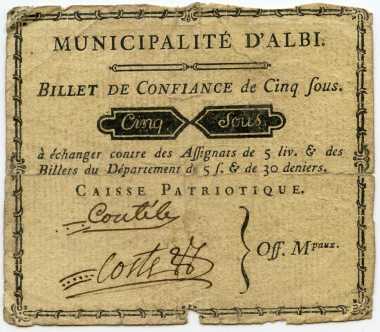 MUNICIPALITÉ D'ALBI.
BILLET DE CONFIANCE de Cinq ſous.
Cinq Sous.
à échanger contre des Aſſignats de 5 liv. & des
Billets du Département de 5 ſ. & de 30 deniers.
CAISSE PATRIOTIQUE.
Coutile
Coste
Off. Mpaux.